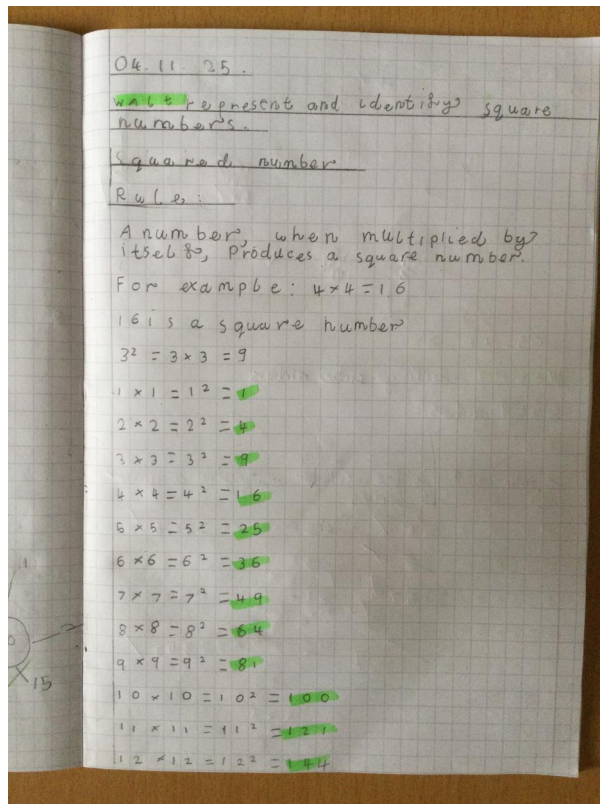 04.11.25.
WALt represent and identify square
numbers.
Squared number
Rule:
A number, when multiplied by
itself, produces a square number.
For example: 4 × 4 = 16
16 is a square number
3² = 3 × 3 = 9
1 × 1 = 1² = 1
2 × 2 = 2² = 4
3 × 3 = 3² = 9
4 × 4 = 4² = 16
5 × 5 = 5² = 25
6 × 6 = 6² = 36
7 × 7 = 7² = 49
8 × 8 = 8² = 64
9 × 9 = 9² = 81
10 × 10 = 10² = 100
11 × 11 = 11² = 121
12 × 12 = 12² = 144
1
15